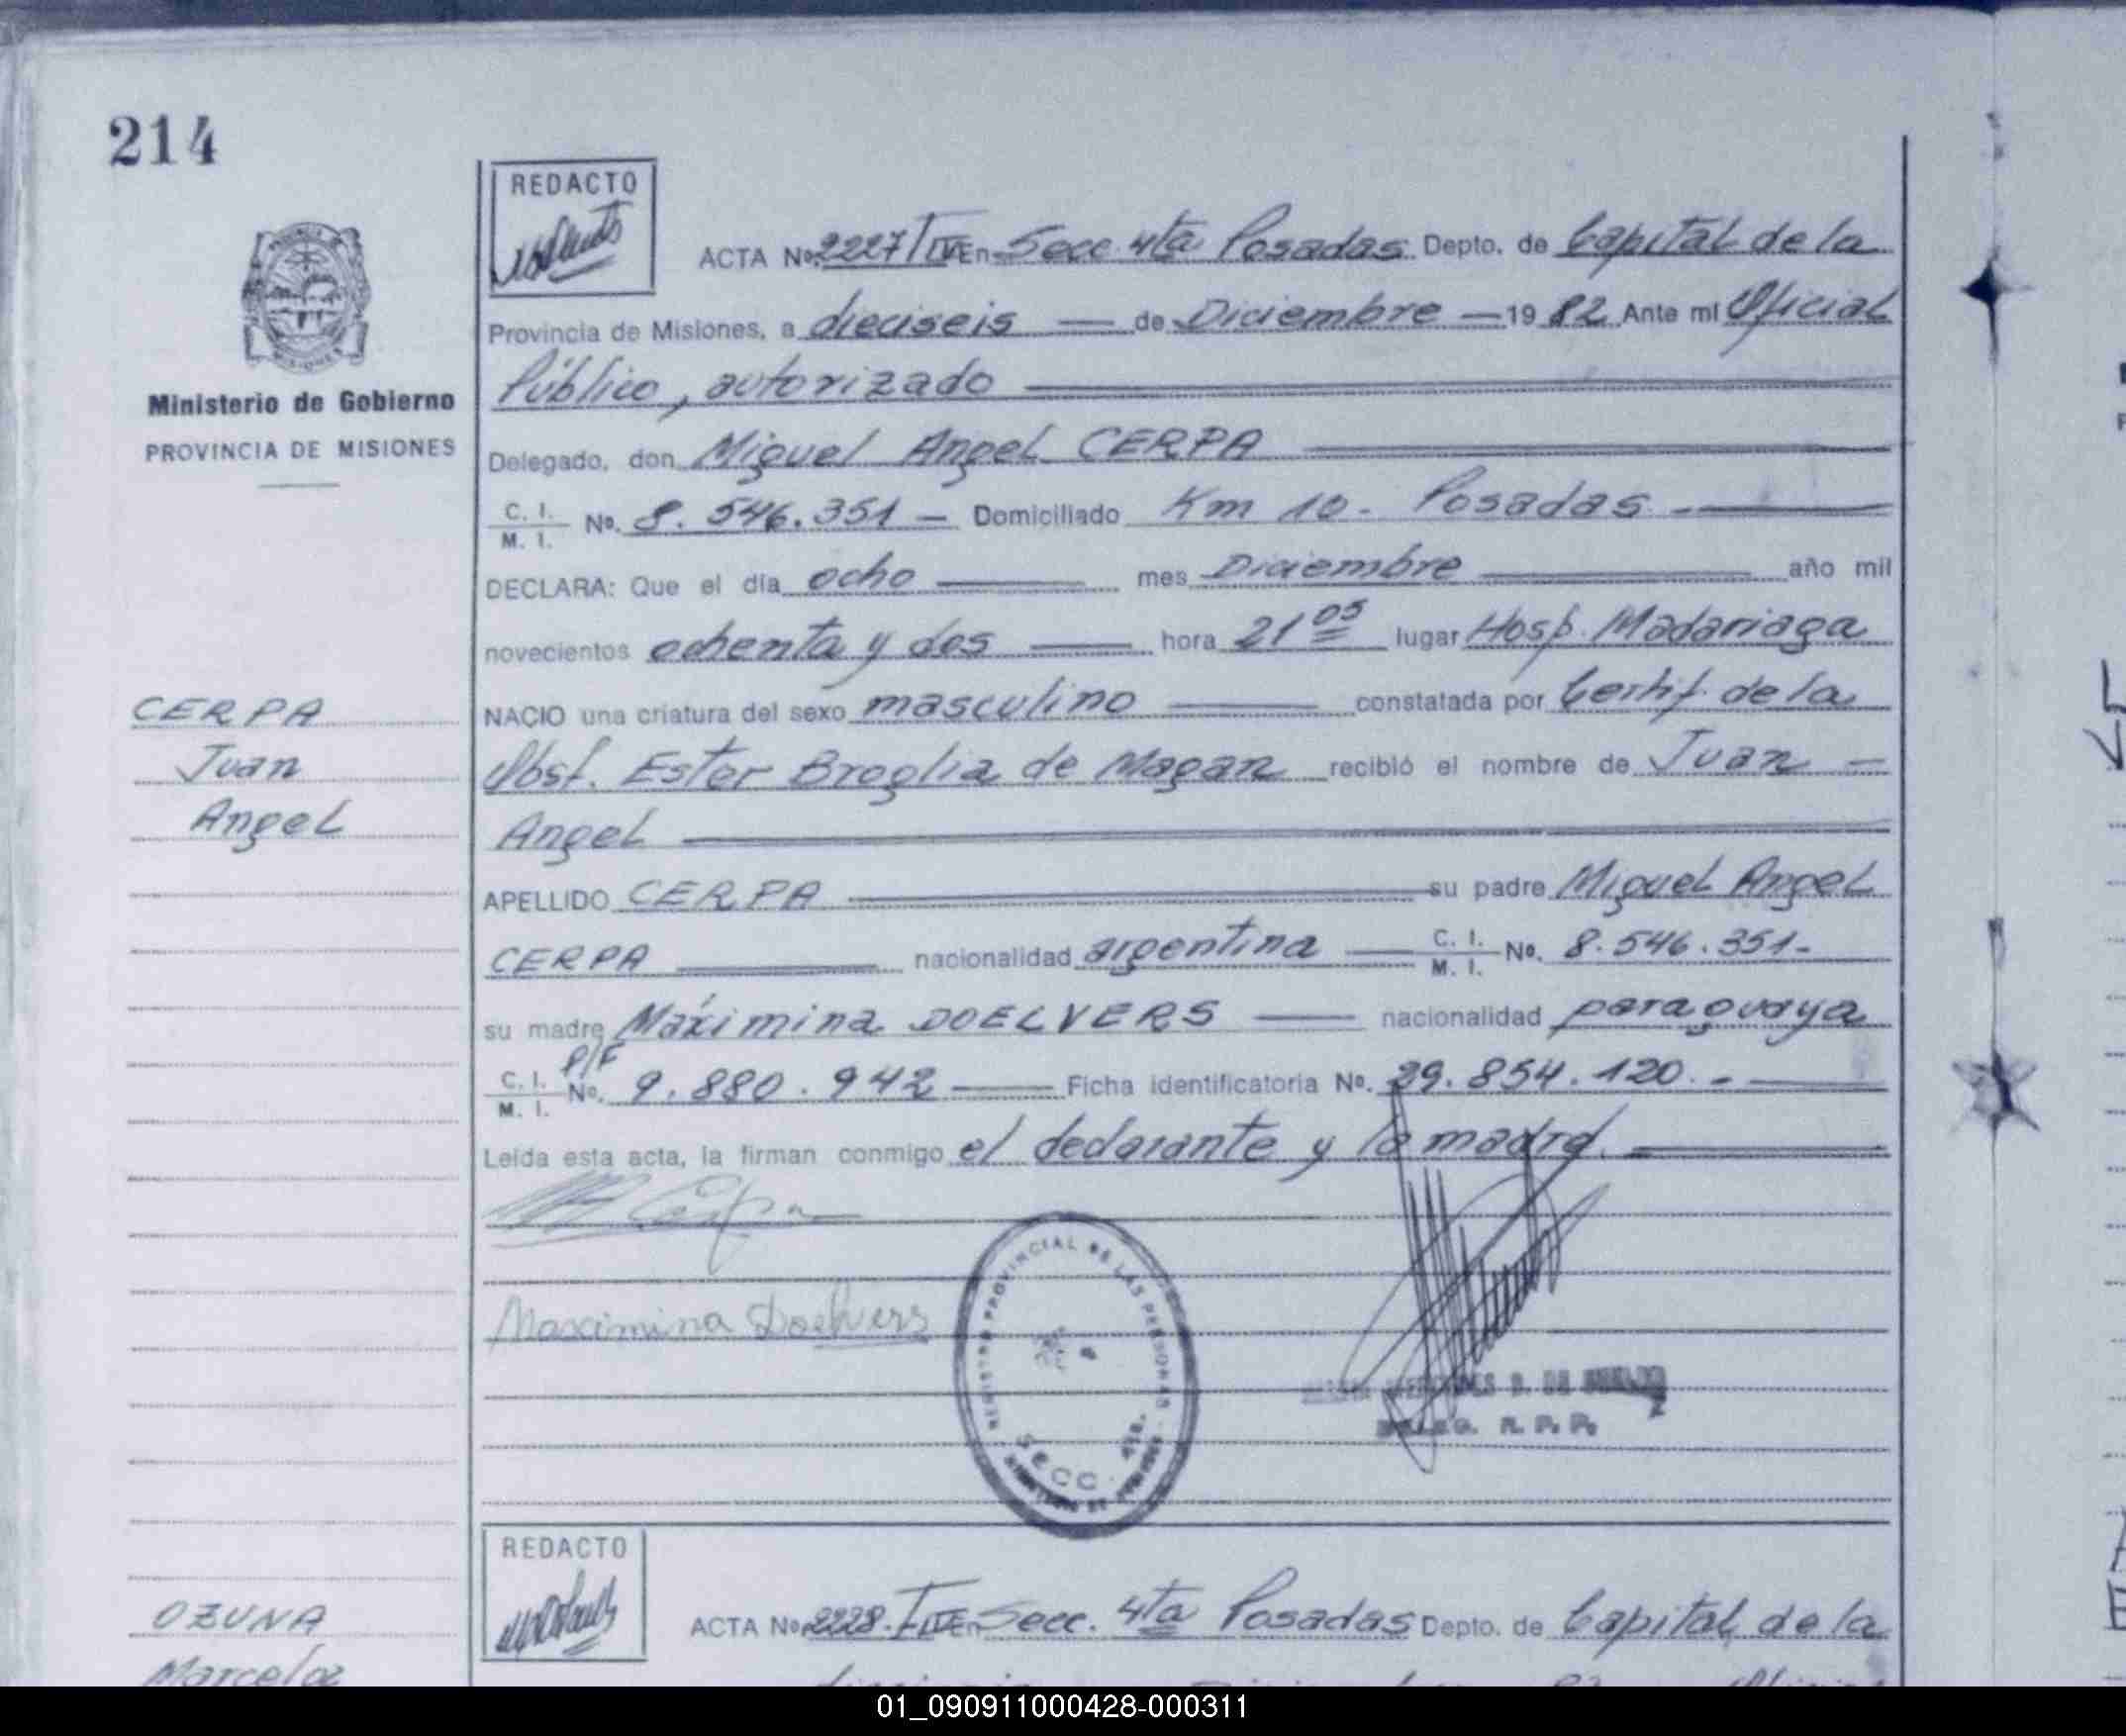 214
REDACTO
ACTA No. 2227/T IV En Secc. 4ta Posadas. Depto. de Capital de la
Provincia de Misiones, a dieciseis — de Diciembre — 19 82 Ante mi Oficial
Público, autorizado
Ministerio de Gobierno
PROVINCIA DE MISIONES
Delegado, don Miguel Angel CERPA
C. I.
M. I. No. 8.546.351 — Domiciliado Km 10 - Posadas. -
DECLARA: Que el día ocho — mes Diciembre — año mil
novecientos ochenta y dos — hora 21 05 lugar Hosp. Madariaga
CERPA
Juan
Angel
NACIO una criatura del sexo masculino — constatada por Certif. de la
Obst. Ester Broglia de Magan recibió el nombre de Juan —
Angel
APELLIDO CERPA — su padre Miguel Angel
CERPA — nacionalidad argentina — C. I. M. I. No. 8.546.351.-
su madre Máximina DOELVERS — nacionalidad paraguaya
C. I. M. I. P/F No. 9.880.942 — Ficha identificatoria No. 29.854.120. -
Leída esta acta, la firman conmigo el declarante y la madre.
Maximina Doelvers
REGISTRO PROVINCIAL DE LAS PERSONAS
SECC. 4ta.
DELEG. R. P. P.
REDACTO
OZUNA
Marcela
ACTA No. 2228. T IV En Secc. 4ta Posadas Depto. de Capital de la
01_090911000428-000311